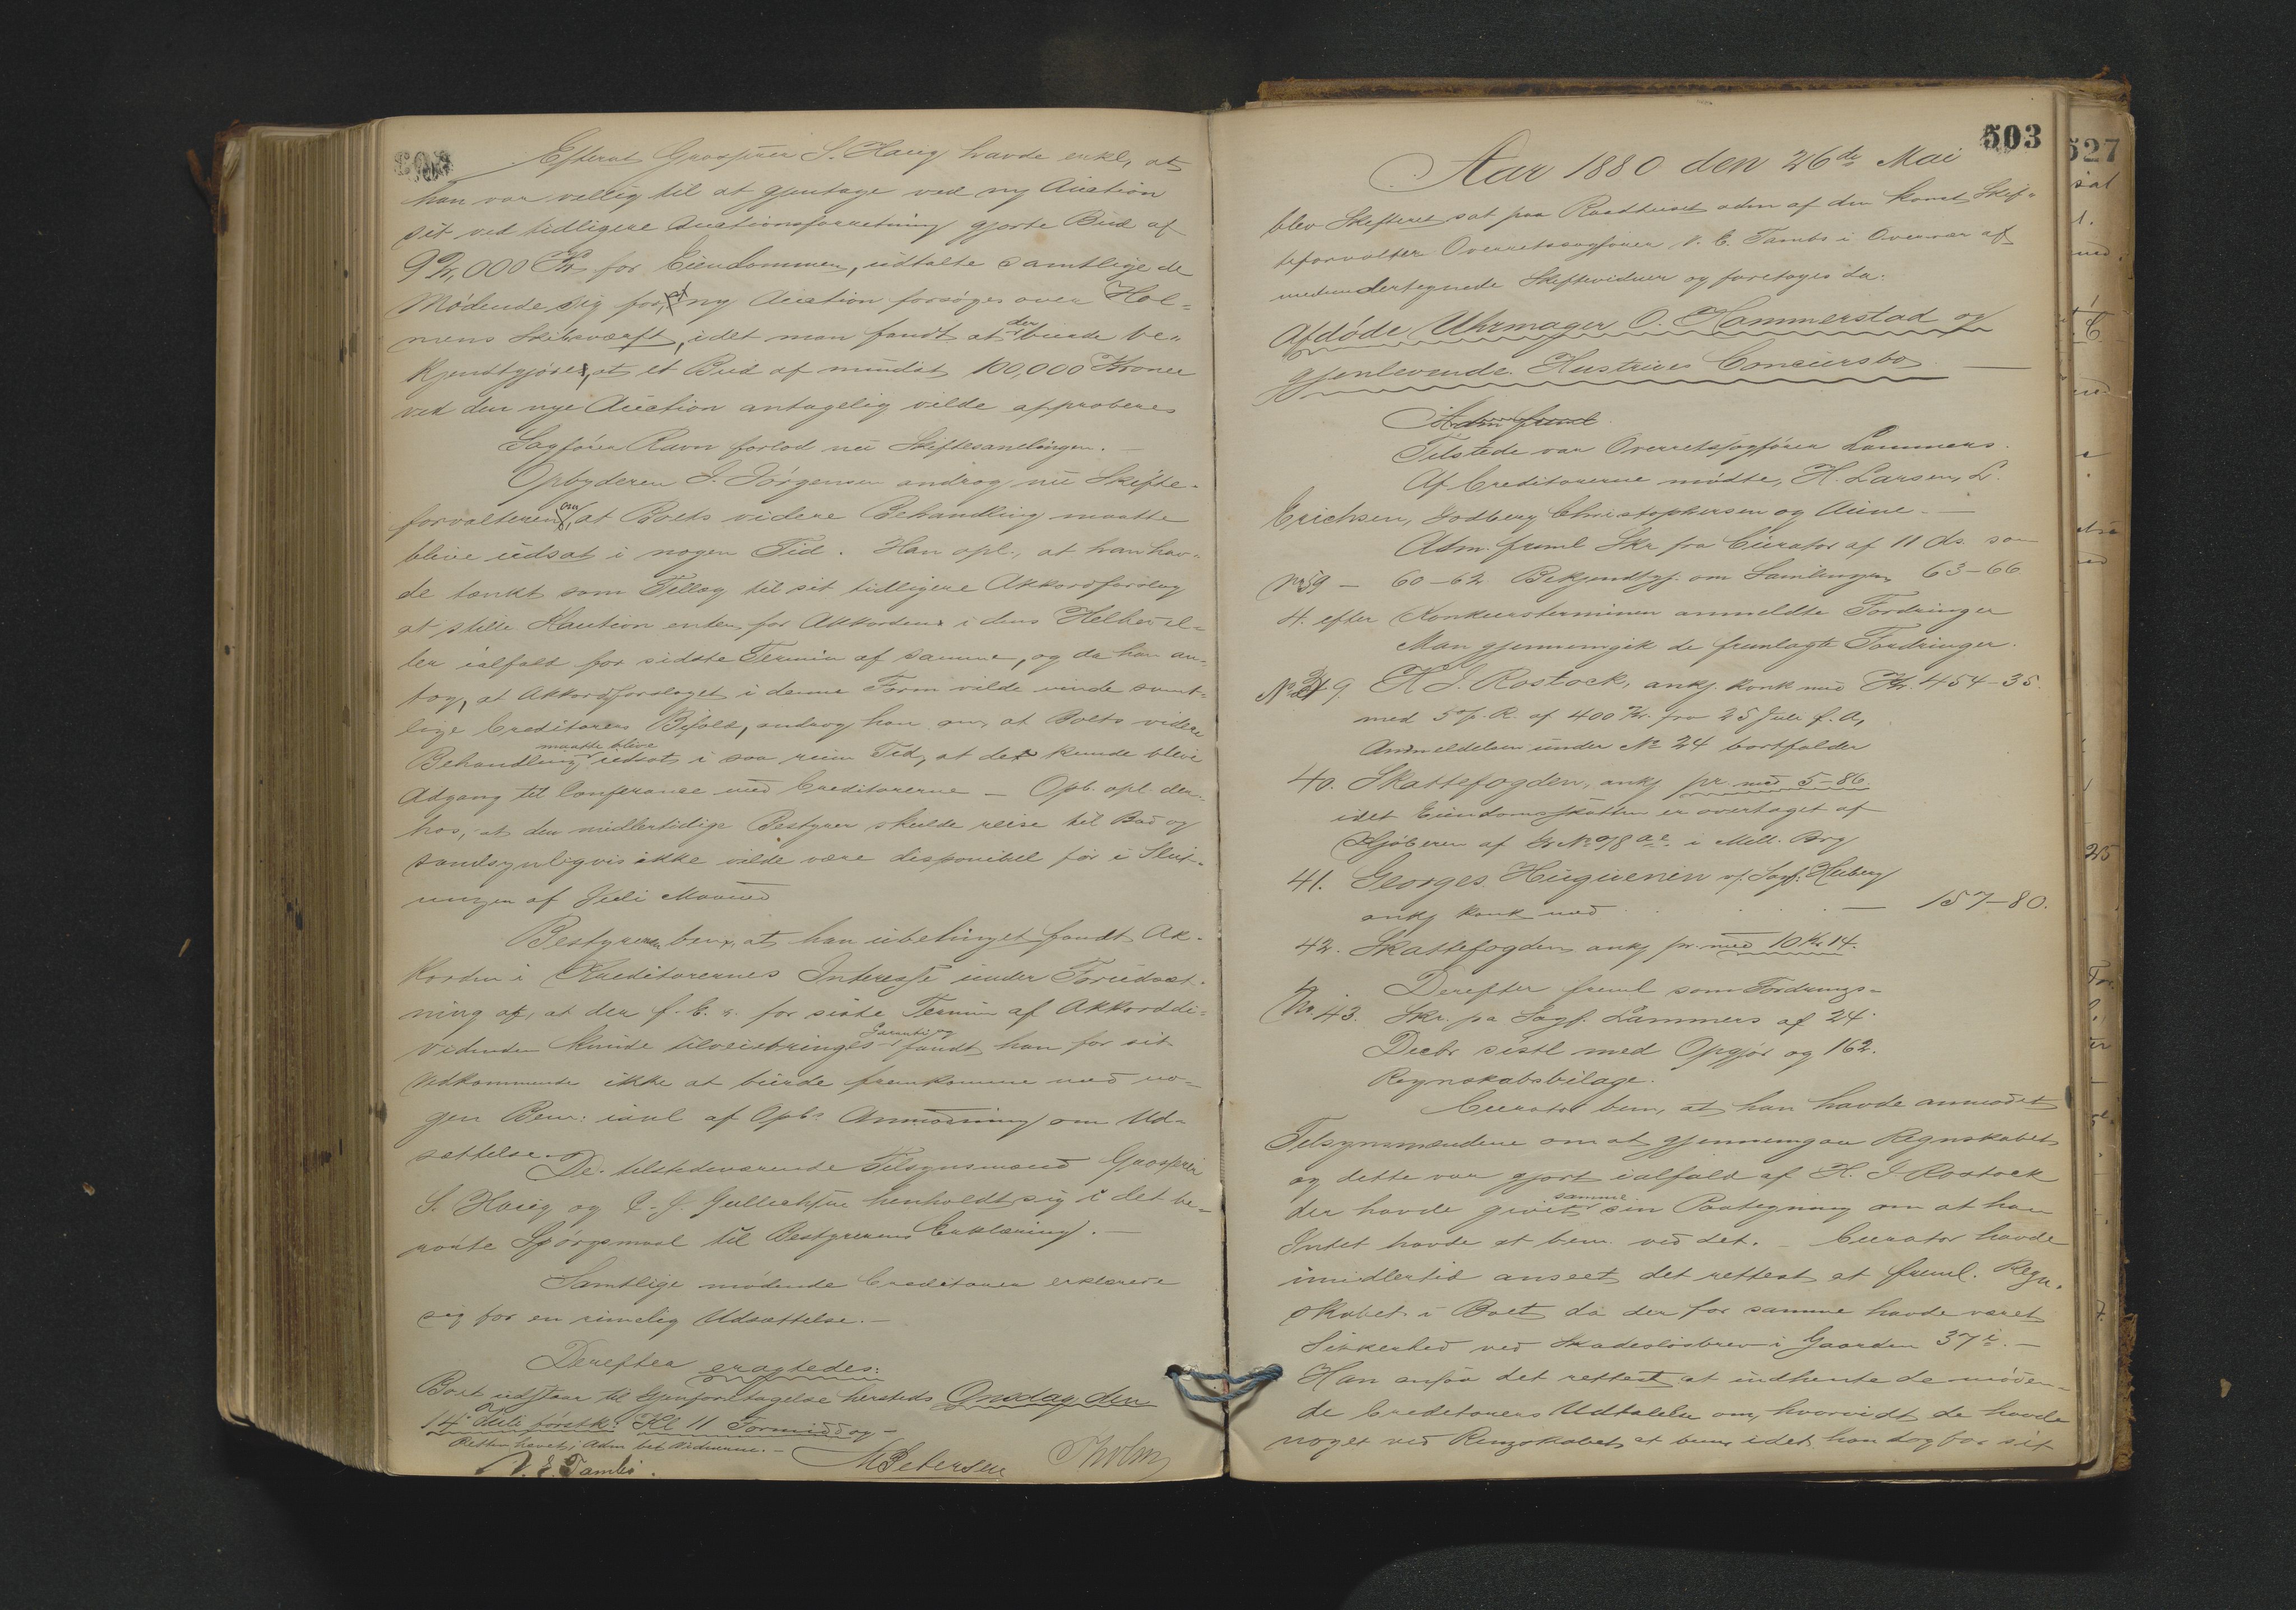 Efterat Grosserer S. Haug havde erkl. at
han var villig til at gjentage ved ny Auction
sit ved tidligere Auctionsforretning gjorte Bud af
92,000 Kr for Eiendommen, udtalte samtlige de
Mødende sig for, at ny Auction forsøges over Hol-
mens Skibsværft, idet man fandt at der burde be-
kjendtgjøres, at et Bud af mindst 100,000 Kroner
ved den nye Auction antagelig vilde approberes
Sagfører Ravn forlod nu Skiftesamlingen. —
Opbyderen J. Jørgensen androg nu Skifte-
forvalteren om, at Boets videre Behandling maatte
blive udsat i nogen Tid. Han opl., at han hav-
de tænkt som Tillæg til sit tidligere Akkordforslag
at stille Kaution enten for Akkorden i dens Helhed el-
ler ialfald for sidste Termin af samme, og da han an-
tog, at Akkordforslaget i denne Form vilde vinde samt-
lige Creditorers Bifald, androg han om, at Boets videre
Behandling maatte blive udsat i saa rum Tid, at der kunde blive
Adgang til Conferance med Creditorerne — Opb. opl. der-
hos, at den midlertidige Bestyrer skulde reise til Bad og
sandsynligvis ikke vilde være disponibel før i Slut-
ningen af Juli Maaned
Bestyreren bem., at han ubetinget fandt Ak-
korden i Kreditorernes Interesse under Forudsæt-
ning af, at der f. E. s. for sidste Termin af Akkorddi-
videnden kunde tilveiebringes Garanti og fandt han for sit
Vedkommende ikke at burde fremkomme med no-
gen Bem: ianl af Opb.s Anmodning om Ud-
sættelse.
De tilstedeværende Tilsynsmænd Grosserer
S. Haug og C. J. Gulbranssen henholdt sig i det be-
rørte Spørgsmaal til Bestyrerens Erklæring. —
Samtlige mødende Creditorer erklærede
sig for en rimelig Udsættelse. —
Derefter eragtedes:
Boet udstaar til Gjenforetagelse hersteds Onsdag den
14 Juli førstk. Kl 11 Formiddag —
Retten hævet; Adm bet Vidnerne. —
N. E. Tambs. M Petersen Tholm
503
Aar 1880 den 26de Mai
blev Skifteret sat paa Raadhuset adm af den konst. Skif-
teforvalter Overretssagfører N. E. Tambs i Overvær af
medundertegnede Skiftevidner og foretoges da:
Afdøde Uhrmager O. Hammerstad og
gjenlevende Hustrues Concursbo —
Adm freml
Tilstede var Overretssagfører Lammers.
Af Creditorerne mødte, H. Larsen, L.
Erichsen, Godberg Christophersen og Aune. —
Adm. freml Skr fra Curator af 11 ds. som
No 59 — 60-62 Bekjendtgj. om Samlingen 63-66
4. efter Konkursterminen anmeldte Fordringer
Man gjennemgik de fremlagte Fordringer.
No 39. H J. Rostock, ankj. konk med Kr. 454-35.
med 5 % R. af 400 Kr. fra 25 Juli f. A,
Anmeldelsen under No 24 bortfalder
40. Skattefogden, ankj pr. med 5-86
idet Eiendomsskatten er overtaget af
Kjøberen af Gr No 98 a i Mell. Brg
41. Georges Huguenin v. Sagf. Heiberg
ankj konk med — 157-80.
42. Skattefogden ankj pr. med 10 Kr 14.
Derefter freml som Fordrings-
No 43. Skr. fra Sagf. Lammers af 24
Decbr sistl med Opgjør og 162.
Regnskabsbilage.
Curator bem, at han havde anmodet
Tilsynsmændene om at gjennemgaa Regnskabet
og dette var gjort ialfald af H. J. Rostock
der havde givet samme sin Paategning om at han
Intet havde at bem. ved det. — Curator havde
imidlertid anseet det rettest at freml. Regn-
skabet i Boet da der for samme havde været
Sikkerhed ved Skadesløsbrev i Gaarden 37 i. —
Han ansaa det rettest at indhente de møden-
de Creditorers Udtalelse om, hvorvidt de havde
noget ved Regnskabet at bem idet han tog for sit
527